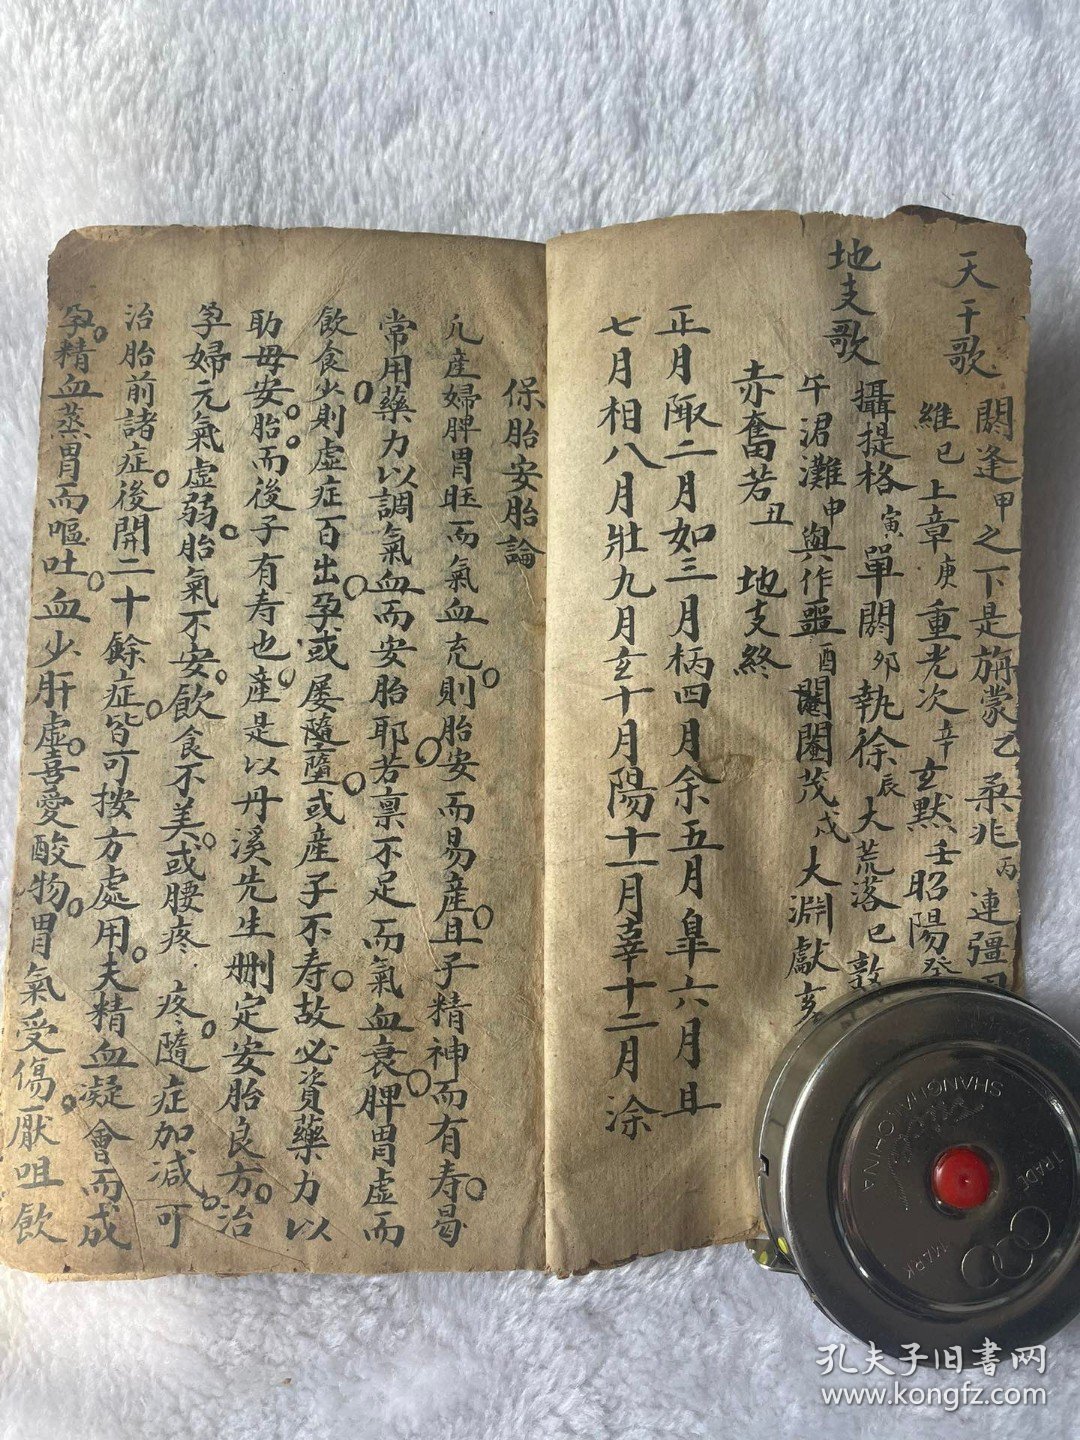 天干歌
閼逢甲之下是旃蒙乙柔兆丙連彊
維已上章庚重光次辛玄默壬昭陽癸
地支歌
攝提格寅單閼夘執徐辰大荒落巳敦
午涒灘申與作噩酉閹茂戌大淵獻亥
赤奮若丑 地支終
正月陬二月如三月柄四月余五月皐六月且
七月相八月壯九月玄十月陽十一月辜十二月涂
保胎安胎論
凢產婦脾胃旺而氣血充則胎安而易產且子精神而有寿曷
常用藥力以調氣血而安胎耶若禀不足而氣血衰脾胃虛而
飲食少則虛症百出孕或屡隨墮或產子不寿故必資藥力以
助毋安胎而後子有寿也產是以丹溪先生刪定安胎良方治
孕婦元氣虛弱胎氣不安飲食不美或腰疼疼隨症加減可
治胎前諸症後開二十餘症皆可按方處用夫精血凝會而成
孕精血蒸胃而嘔吐血少肝虛喜愛酸物胃氣受傷厭咀飲
SHANGHAI CHINA
TRADE MARK
孔夫子旧書网
www.kongfz.com